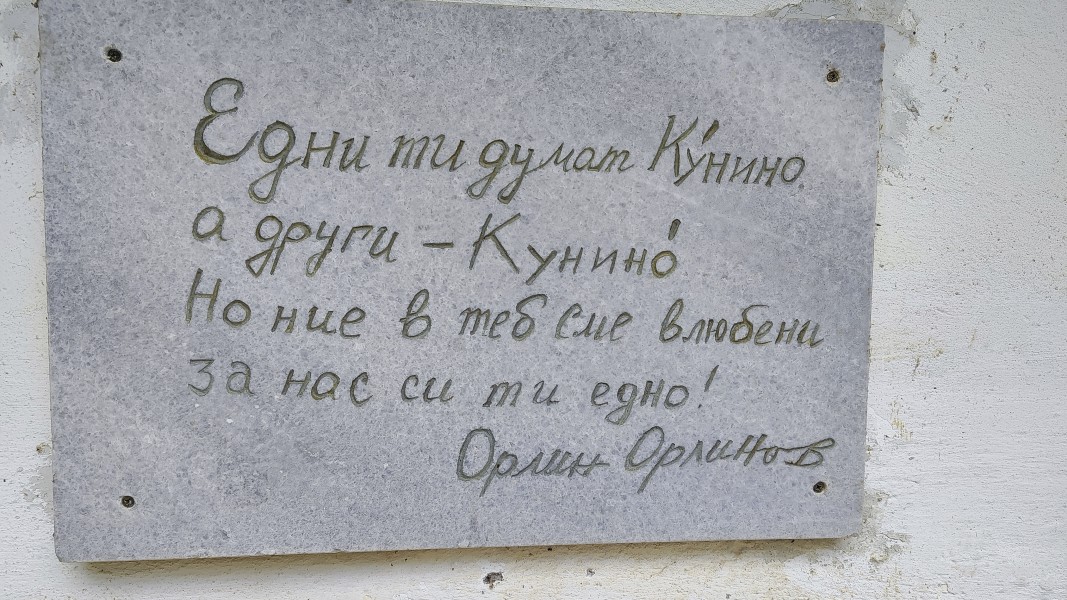 Едни ти думат Ку́нино
а други – Кунино́
Но ние в теб сме влюбени
за нас си ти едно!
Орлин Орлинов